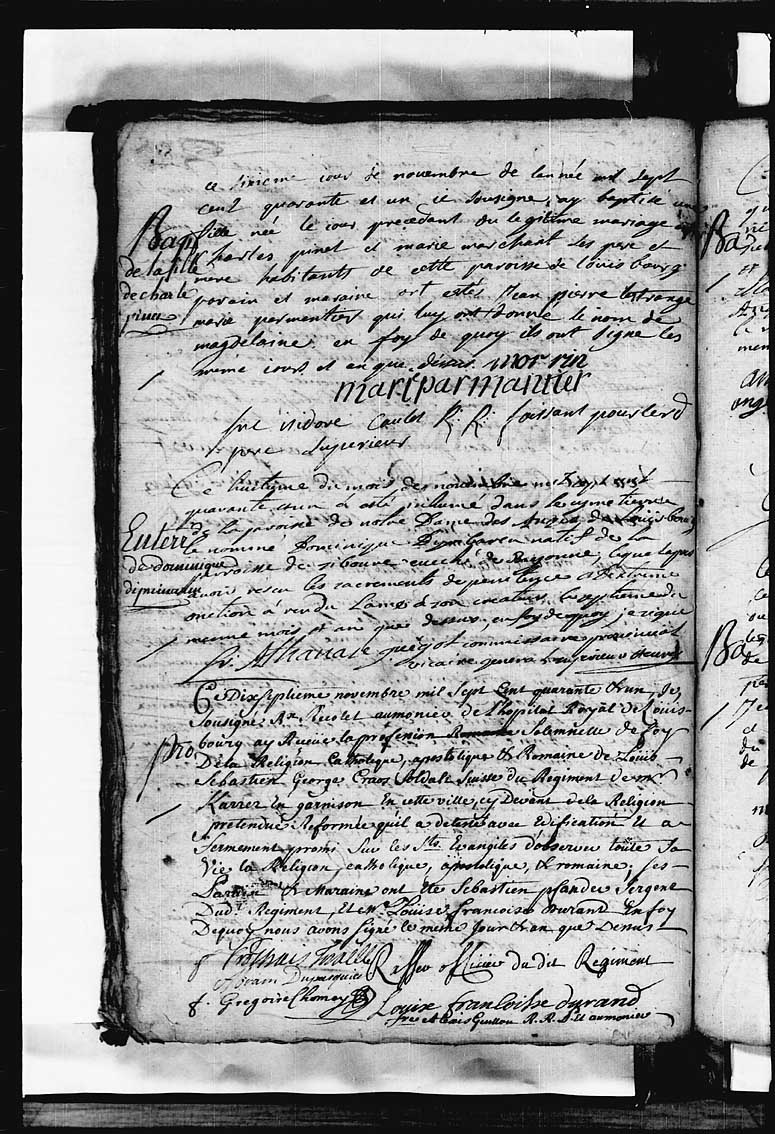 ce sixieme jour de novembre de lannée mil sept
cent quarante et un ie sousigné ay baptisé une
fille née le iour precedant du legitime mariage
Charles pinet et marie marchant les pere et
mere habitants de cette paroisse de louisbourg
parain et maraine ont estés Jean pierre lestrange
marie parmentier qui luy ont donné le nom de
magdelaine en foy de quoy ils ont signé les
meme iours et an que dessus morrin
Bap
de la fille
de charle
pinet
mari parmantier
frere isidore Caulet R. R. faissant pour le rd
pere superieur
Ce huitieme du mois de novembre mil sept cent
quarante et un a esté inhumé dans le cymetierre
de la paroisse de notre Dame des Anges de Louisbourg
le nommé Dominique natif de la
parroisse de siboure eveché de Bayonne, lequel apres
avoir receu les sacrements de penitence et extreme
onction a rendu lame a son createur le septieme du
mesme mois et an que dessus en foy de quoy je signe
Enterré
de dominique
fr. Athanase guégot commissaire provincial
vicaire general superieur
Ce Dixseptieme novembre mil sept Cent quarante & un, Je
sousigné Recolet aumonier de l'hopital Royal de Louis-
bourg ay Receue la profession Solemnelle de foy
De la Religion Catholique, apostolique & Romaine de Louis
Sebastien George Craos soldat Suisse du Regiment de mr
Karrer En garnison En cette ville, cy Devant de la Religion
pretendue Reformée quil a detesté avec Edification Et a
Sermement promi Sur les Sts. Evangiles d'observer toute Sa
Vie la Religion, catholique, apostolique, & romaine, ses
Parain & Maraine ont Eté Sebastien pfander Sergent
Dudt. Regiment, Et Louise francoise durand En foy
Dequoy nous avons signé le meme Jour & an que Dessus
pro
Resseo officier du dit Regiment
f. Gregoire Chomey Louise francoise durand
frere Guillou R. R. aumonier